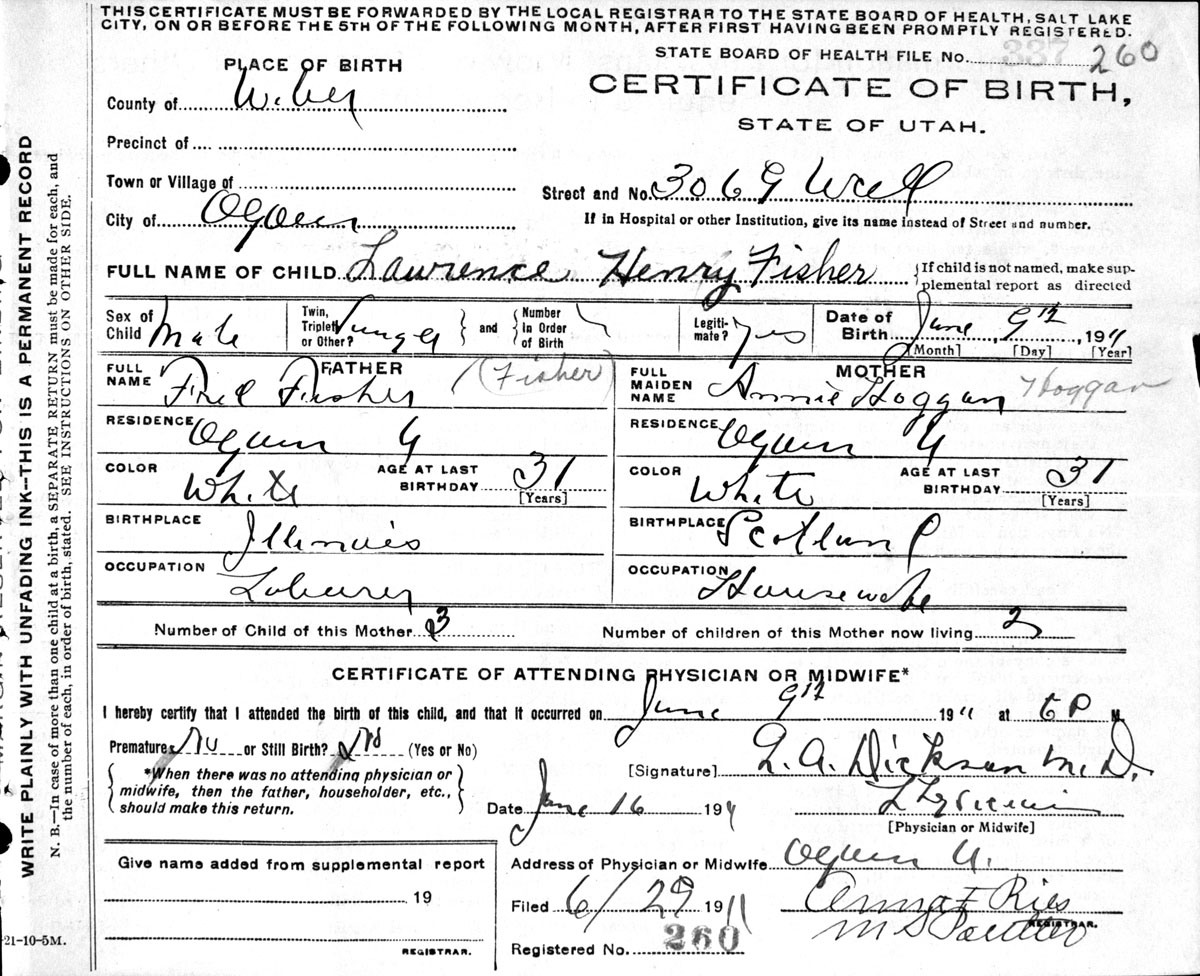 THIS CERTIFICATE MUST BE FORWARDED BY THE LOCAL REGISTRAR TO THE STATE BOARD OF HEALTH, SALT LAKE
CITY, ON OR BEFORE THE 5TH OF THE FOLLOWING MONTH, AFTER FIRST HAVING BEEN PROMPTLY REGISTERED.
STATE BOARD OF HEALTH FILE No. 337 260
PLACE OF BIRTH
CERTIFICATE OF BIRTH,
STATE OF UTAH.
County of Weber
Precinct of
Town or Village of
Street and No. 3069 Wall
City of Ogden
If in Hospital or other Institution, give its name instead of Street and number.
FULL NAME OF CHILD Lawrence Henry Fisher {If child is not named, make sup-
plemental report as directed
Sex of Child Male
Twin, Triplet or Other?
and {Number In Order of Birth
Legiti-mate? yes
Date of Birth June 9th, 1911
[Month] [Day] [Year]
FATHER
FULL NAME Fred Fisher (Fisher)
MOTHER
FULL MAIDEN NAME Annie Hoggan Hoggan
RESIDENCE Ogden U
RESIDENCE Ogden U
COLOR White AGE AT LAST BIRTHDAY 31 [Years]
COLOR White AGE AT LAST BIRTHDAY 31 [Years]
BIRTHPLACE Illinois
BIRTHPLACE Scotland
OCCUPATION Laborer
OCCUPATION Housewife
Number of Child of this Mother 3
Number of children of this Mother now living 2
CERTIFICATE OF ATTENDING PHYSICIAN OR MIDWIFE*
I hereby certify that I attended the birth of this child, and that it occurred on June 9th 1911 at 6 P M.
Premature No or Still Birth? No (Yes or No)
{*When there was no attending physician or
midwife, then the father, householder, etc.,
should make this return.}
[Signature] Dickson M.D.
Date June 16 1911
[Physician or Midwife]
Give name added from supplemental report
19
REGISTRAR.
Address of Physician or Midwife Ogden U.
Filed 6/29 1911 Anna F Ries
REGISTRAR.
Registered No. 260
WRITE PLAINLY WITH UNFADING INK--THIS IS A PERMANENT RECORD
N. B.—In case of more than one child at a birth, a SEPARATE RETURN must be made for each, and
the number of each, in order of birth, stated. SEE INSTRUCTIONS ON OTHER SIDE.
21-10-5M.